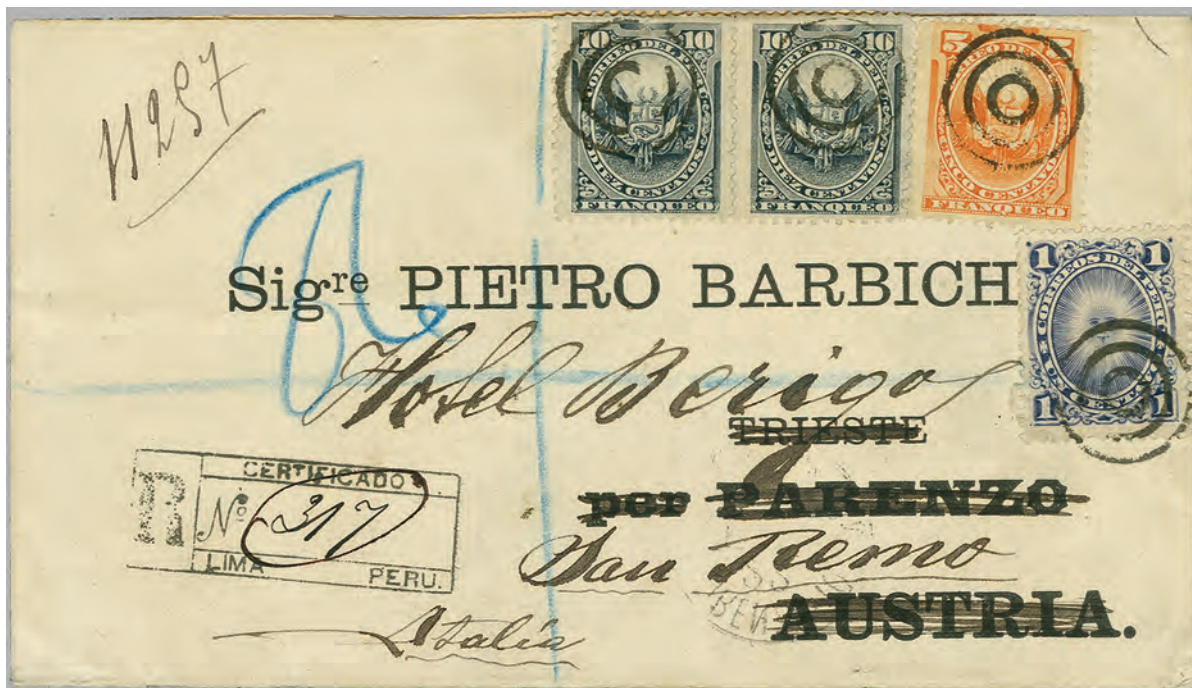 11257
10 CORREO DEL PERU 10
DIEZ CENTAVOS
FRANQUEO
10 CORREO DEL PERU 10
DIEZ CENTAVOS
FRANQUEO
5 CORREO DEL 5
CINCO CENTAVOS
FRANQUEO
1 CORREOS DEL PERU 1
1 UN CENTAVO 1
Sigre PIETRO BARBICH
Hotel Berigo
TRIESTE
per PARENZO
San Remo
AUSTRIA.
R CERTIFICADO
No 317
LIMA PERU.
Italia